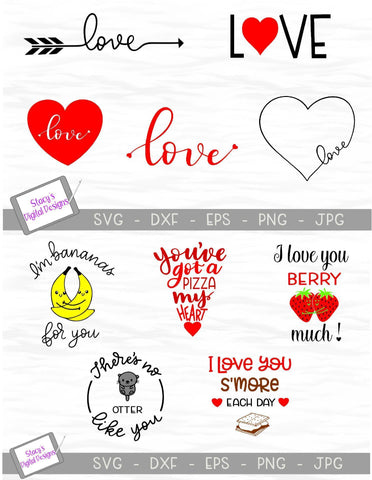 love
LOVE
love
love
love
Stacy's
Digital Designs
SVG - DXF - EPS - PNG - JPG
I'm bananas
for you
You've
got a
PIZZA
my
HEART
I love you
BERRY
much!
There's no
OTTER
like you
I LOVE YOU
S'MORE
EACH DAY
Stacy's
Digital Designs
SVG - DXF - EPS - PNG - JPG